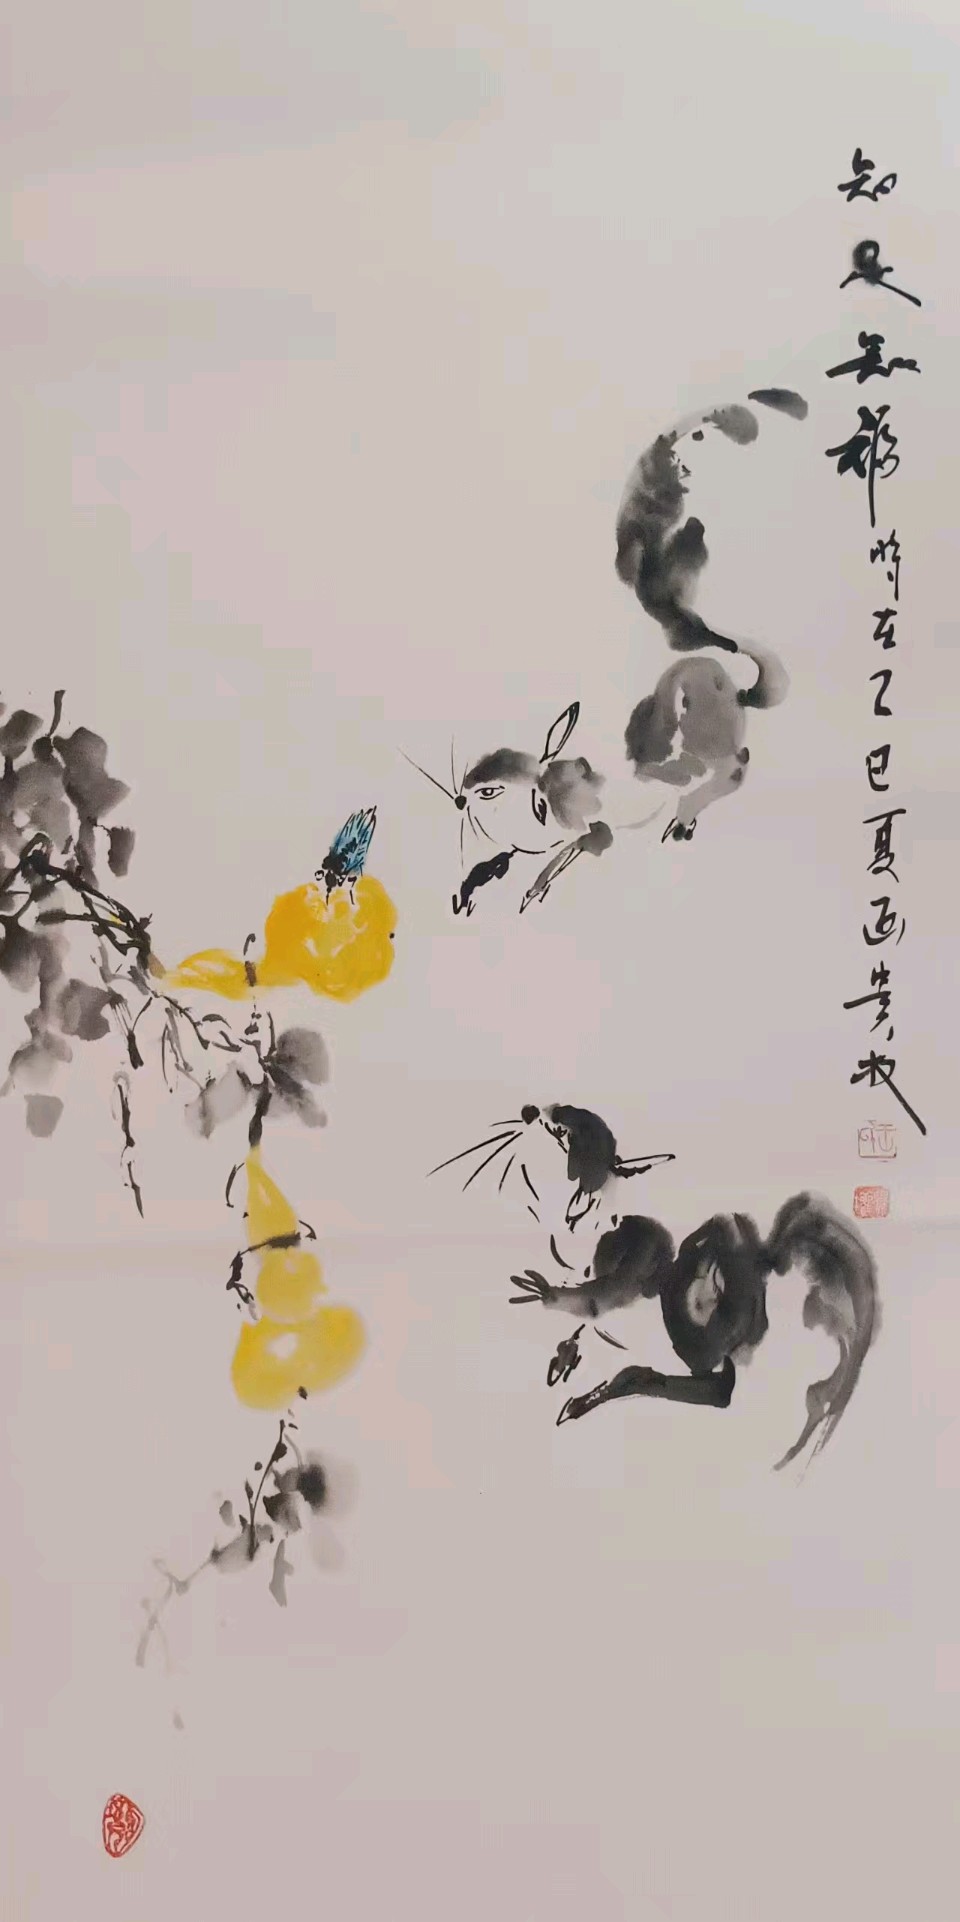 知足知福时在乙巳夏画贵牧